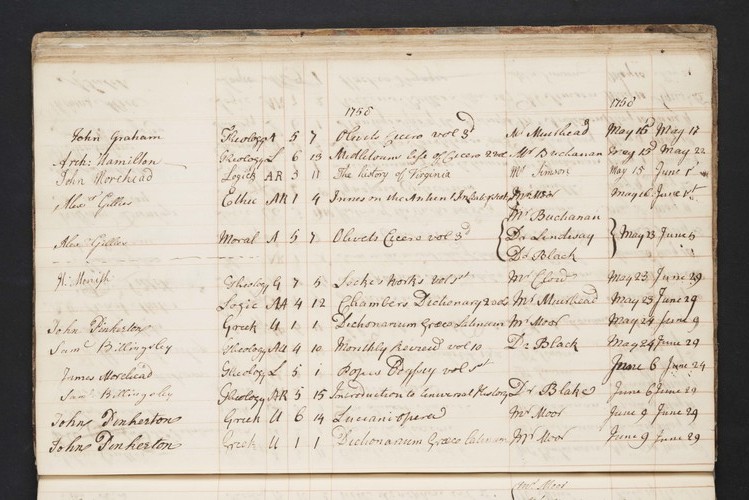 1758 1758
John Graham Theology A 5 7 Olivets Cicero vol 3d Mr Muirhead May 15d May 17
Arch: Hamilton Theology L 6 13 Midletouns life of Cicero 2 vol Mr Buchanan May 15d May 22
John Morehead Logick AR 3 11 The history of Virginia Mr Simson May 15 June 1st
Alexr Gillies Ethic AR 1 4 Innes on the Antient Mr Moor May 16 June 1st
Mr Buchanan
Alexr Gillies Moral A 5 7 Olivets Cicero vol 3d Dr Lindsay May 23 June 6
Dr Black
Theology G 7 5 Locke Works vol 1st Mr Clow May 23 June 29
Logic AA 4 12 Chambers Dictionary 2 vol Mr Muirhead May 23 June 29
John Pinkerton Greek U 1 1 Dictionarium Græco Latinum Mr Moor May 24 June 9
Saml Billingsley Theology AA 4 10 Monthly Review vol 10 Dr Black May 24 June 29
James Morehead Theology L 5 1 Popes vol 1st June 6 June 24
Saml Billingsley Theology AR 5 15 Introduction to Universal History Dr Blake June 6 June 29
John Pinkerton Greek U 6 14 Luciani opera Mr Moor June 9 June 29
John Pinkerton Greek U 1 1 Dictionarium Græco Latinum Mr Moor June 9 June 29
Mr Moor